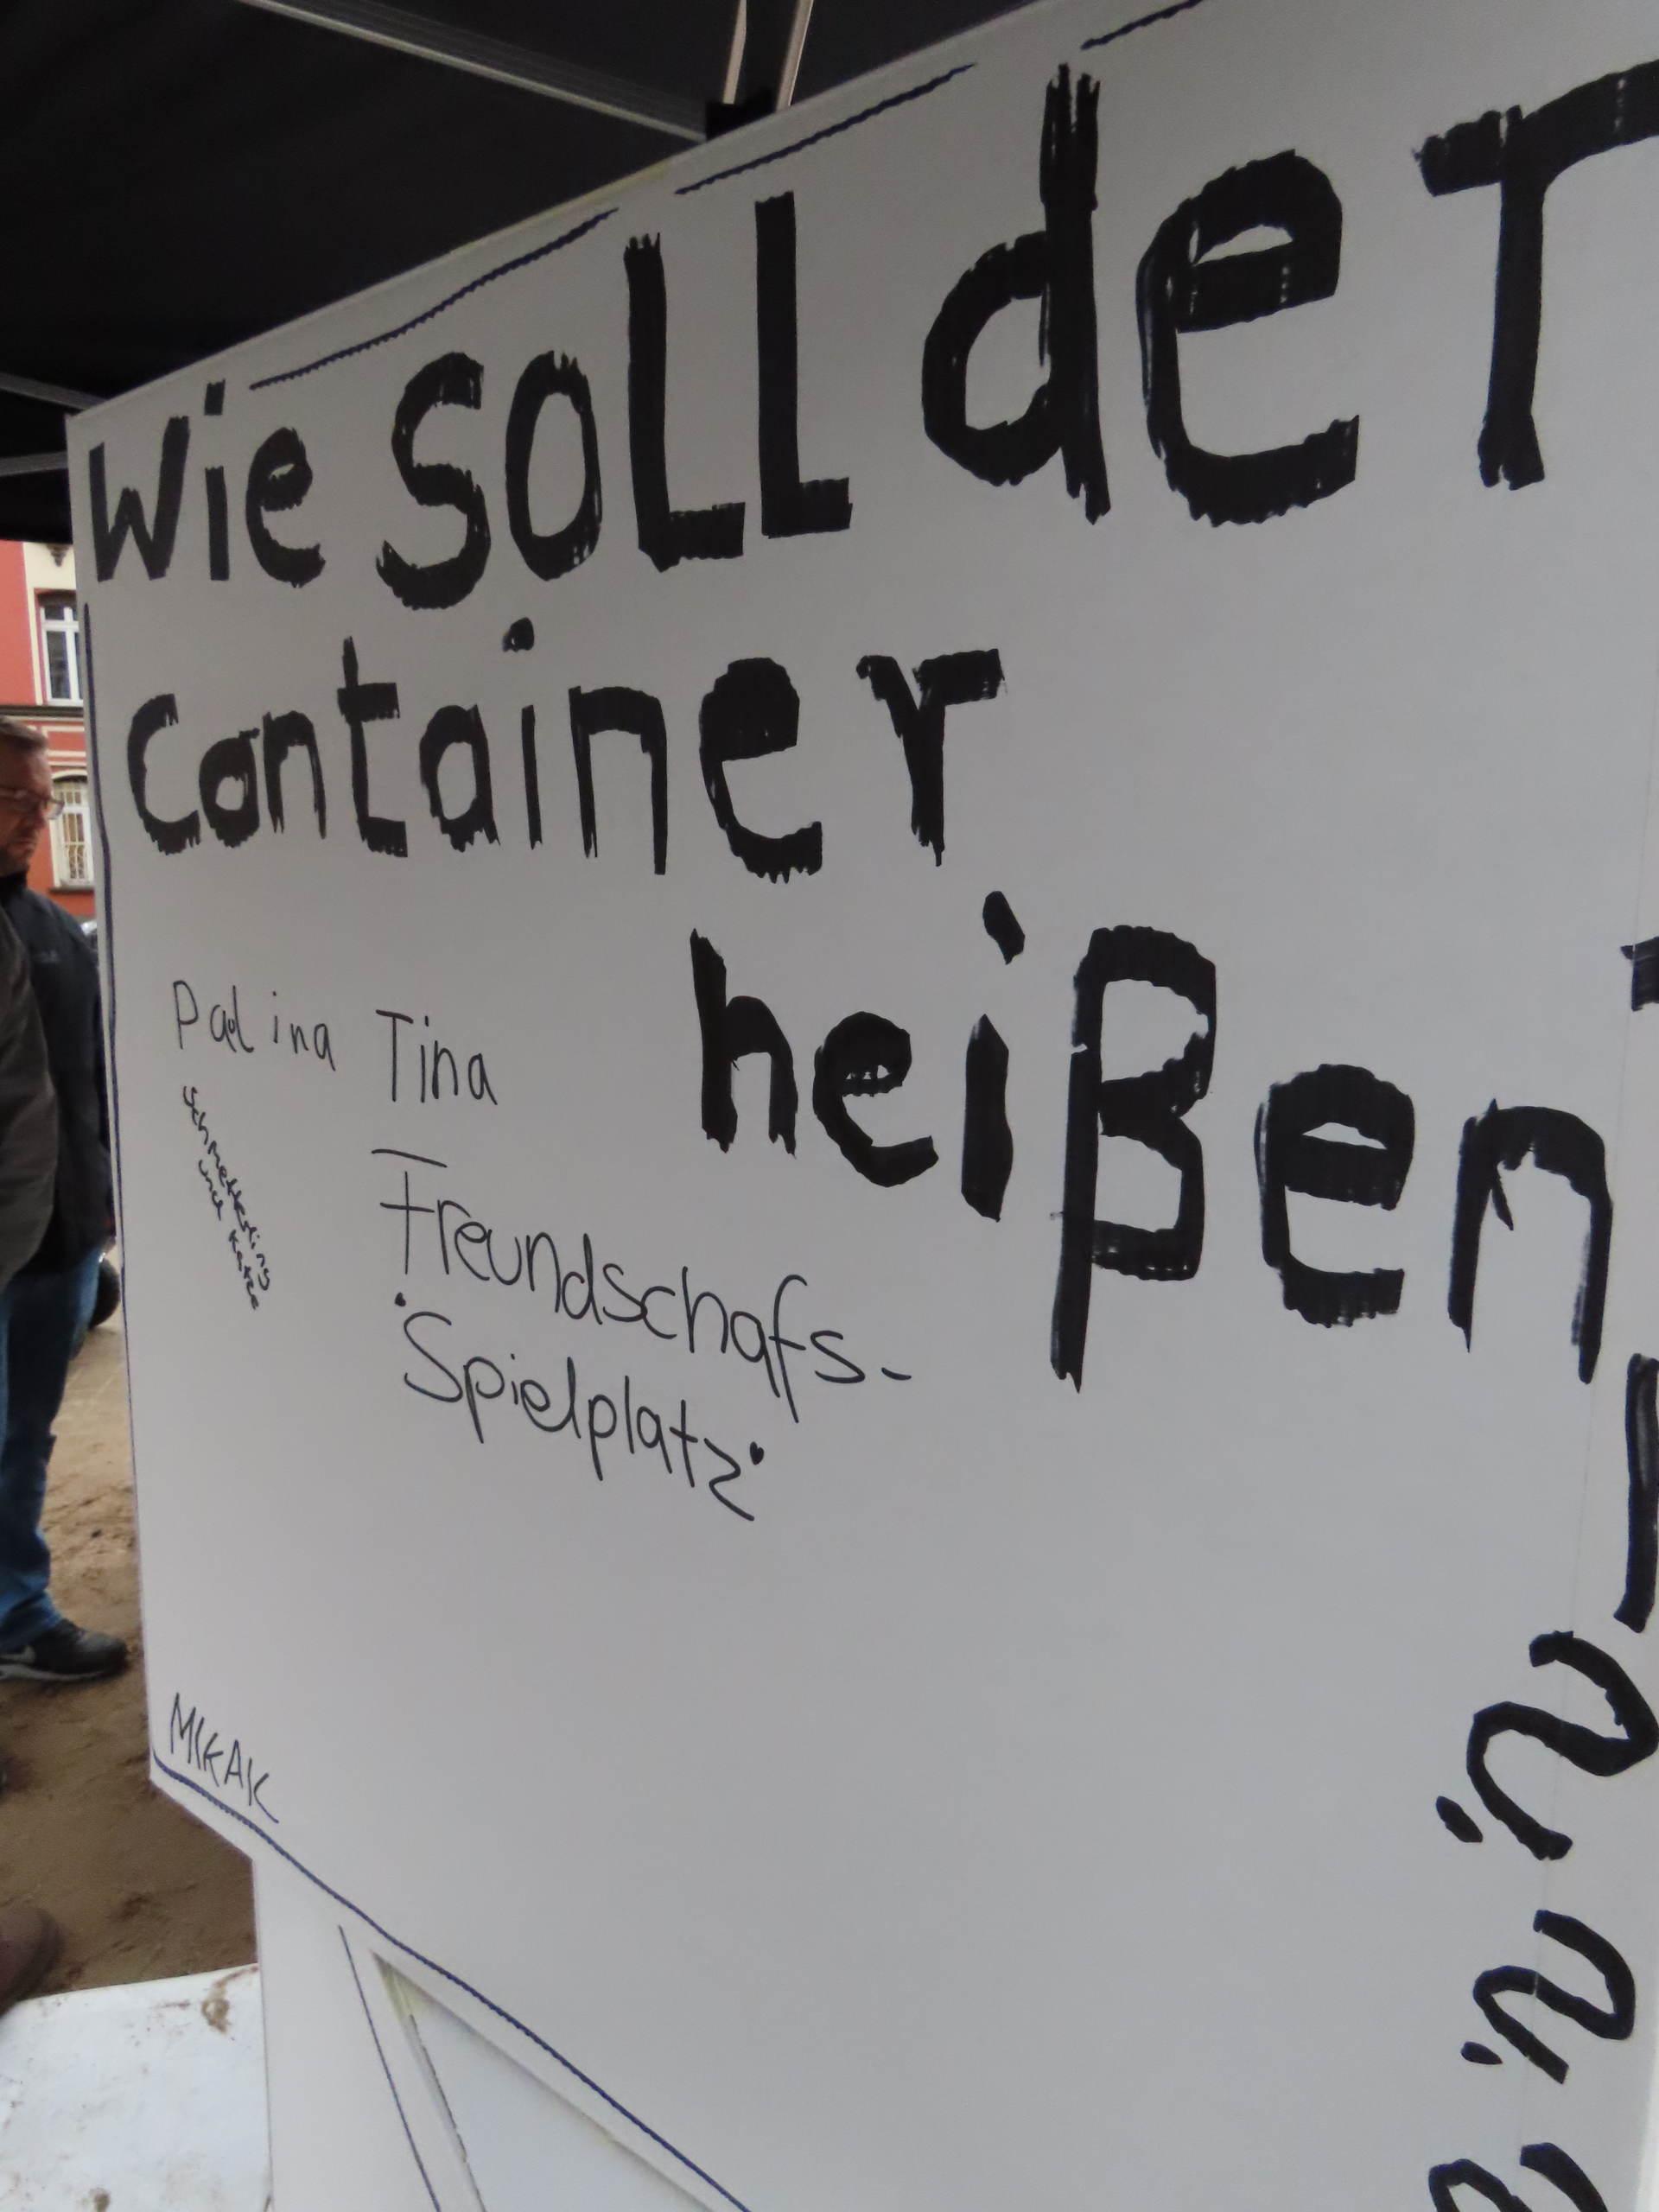 Wie soll der
Container
heißen
Palina
Tina
Schmetterling
und Katze
Freundschafs-
"Spielplatz"
MIKAK
? ? ?